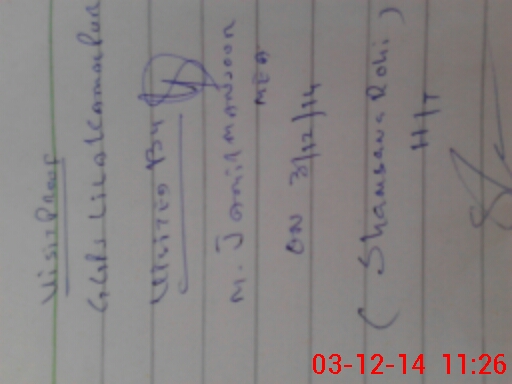 Visit Proof
GGPS Lilak Kamalpur
Visited By
M. Jamil Mansoor
MEA
ON 3/12/14
(Shamsana Rohi)
H/T
03-12-14 11:26